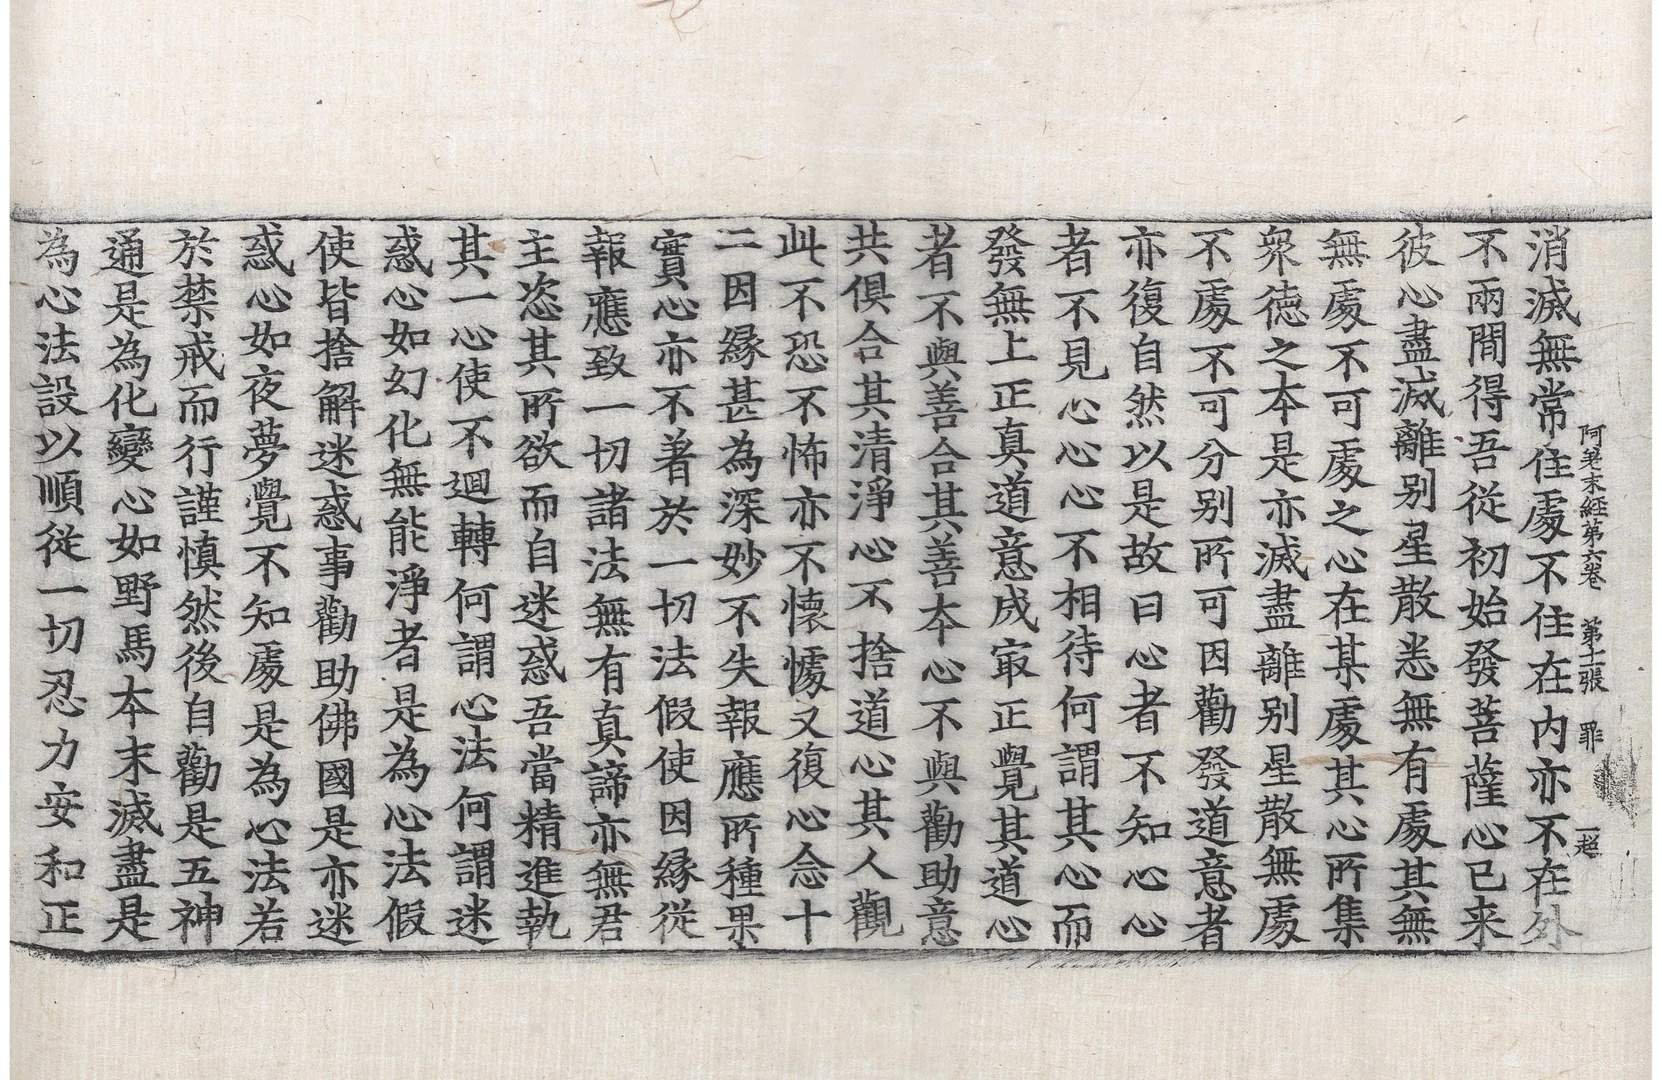 阿差末經第六卷 第十一張 罪 一超
消滅無常住處不住在内亦不在外
不兩間得吾從初始發菩薩心已来
彼心盡滅離别星散悉無有處其無
無處不可處之心在某處其心所集
衆徳之本是亦滅盡離别星散無處
不處不可分别所可因勸發道意者
亦復自然以是故曰心者不知心心
者不見心心心不相待何謂其心而
發無上正真道意成㝡正覺其道心
者不與善合其善本心不與勸助意
共俱合其清淨心不捨道心其人觀
此不恐不怖亦不懷懅又復心念十
二因緣甚為深妙不失報應所種果
實心亦不著於一切法假使因緣從
報應致一切諸法無有真諦亦無君
主恣其所欲而自迷惑吾當精進執
其一心使不迴轉何謂心法何謂迷
惑心如幻化無能淨者是為心法假
使皆捨解迷惑事勸助佛國是亦迷
惑心如夜夢覺不知處是為心法若
於禁戒而行謹慎然後自勸是五神
通是為化變心如野馬本末滅盡是
為心法設以順從一切忍力安和正